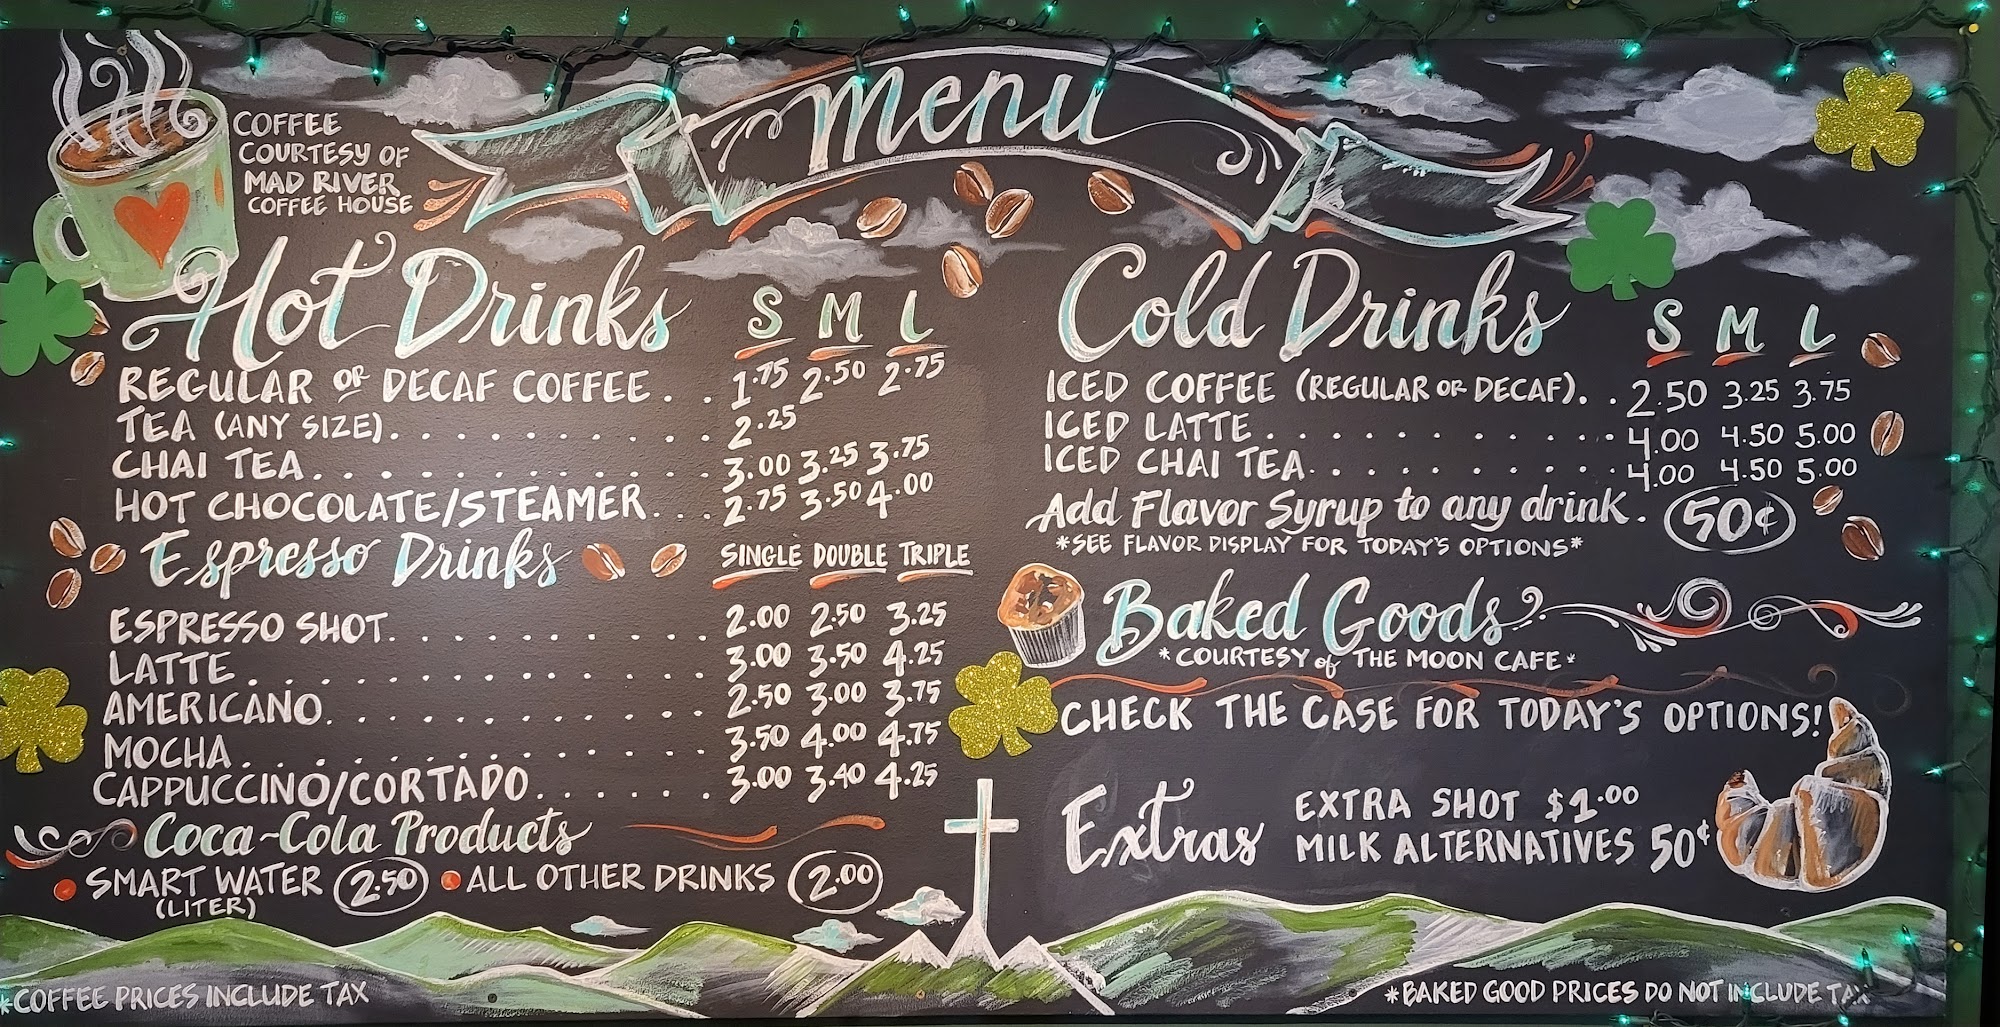 Menu
COFFEE
COURTESY OF
MAD RIVER
COFFEE HOUSE
Hot Drinks S M L
REGULAR OR DECAF COFFEE . . 1.75 2.50 2.75
TEA (ANY SIZE). . . . . . . . . . . 2.25
CHAI TEA. . . . . . . . . . . . . 3.00 3.25 3.75
HOT CHOCOLATE/STEAMER. . . 2.75 3.50 4.00
Espresso Drinks SINGLE DOUBLE TRIPLE
ESPRESSO SHOT. . . . . . . . . . . 2.00 2.50 3.25
LATTE . . . . . . . . . . . . . . 3.00 3.50 4.25
AMERICANO. . . . . . . . . . . . 2.50 3.00 3.75
MOCHA. . . . . . . . . . . . . . 3.50 4.00 4.75
CAPPUCCINO/CORTADO. . . . . . 3.00 3.40 4.25
Coca-Cola Products
SMART WATER 2.50 ALL OTHER DRINKS 2.00
(LITER)
*COFFEE PRICES INCLUDE TAX
Cold Drinks S M L
ICED COFFEE (REGULAR OR DECAF). . 2.50 3.25 3.75
ICED LATTE. . . . . . . . . . . . . 4.00 4.50 5.00
ICED CHAI TEA. . . . . . . . . . . 4.00 4.50 5.00
Add Flavor Syrup to any drink. 50¢
*SEE FLAVOR DISPLAY FOR TODAY'S OPTIONS*
Baked Goods
*COURTESY of THE MOON CAFE*
CHECK THE CASE FOR TODAY'S OPTIONS!
Extras EXTRA SHOT $1.00
MILK ALTERNATIVES 50¢
*BAKED GOOD PRICES DO NOT INCLUDE TAX